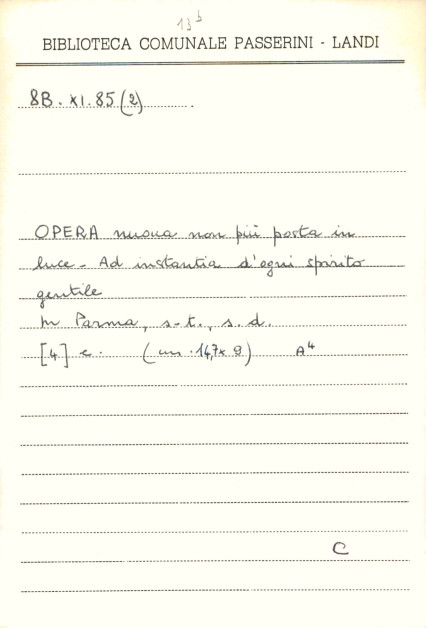 13b
BIBLIOTECA COMUNALE PASSERINI - LANDI
8B. XI. 85 (2)
OPERA nuova non più posta in
luce - Ad instantia d'ogni spirito
gentile
In Parma, s.t., s.d.
[4] c. (cm. 14,7x9) A4
C